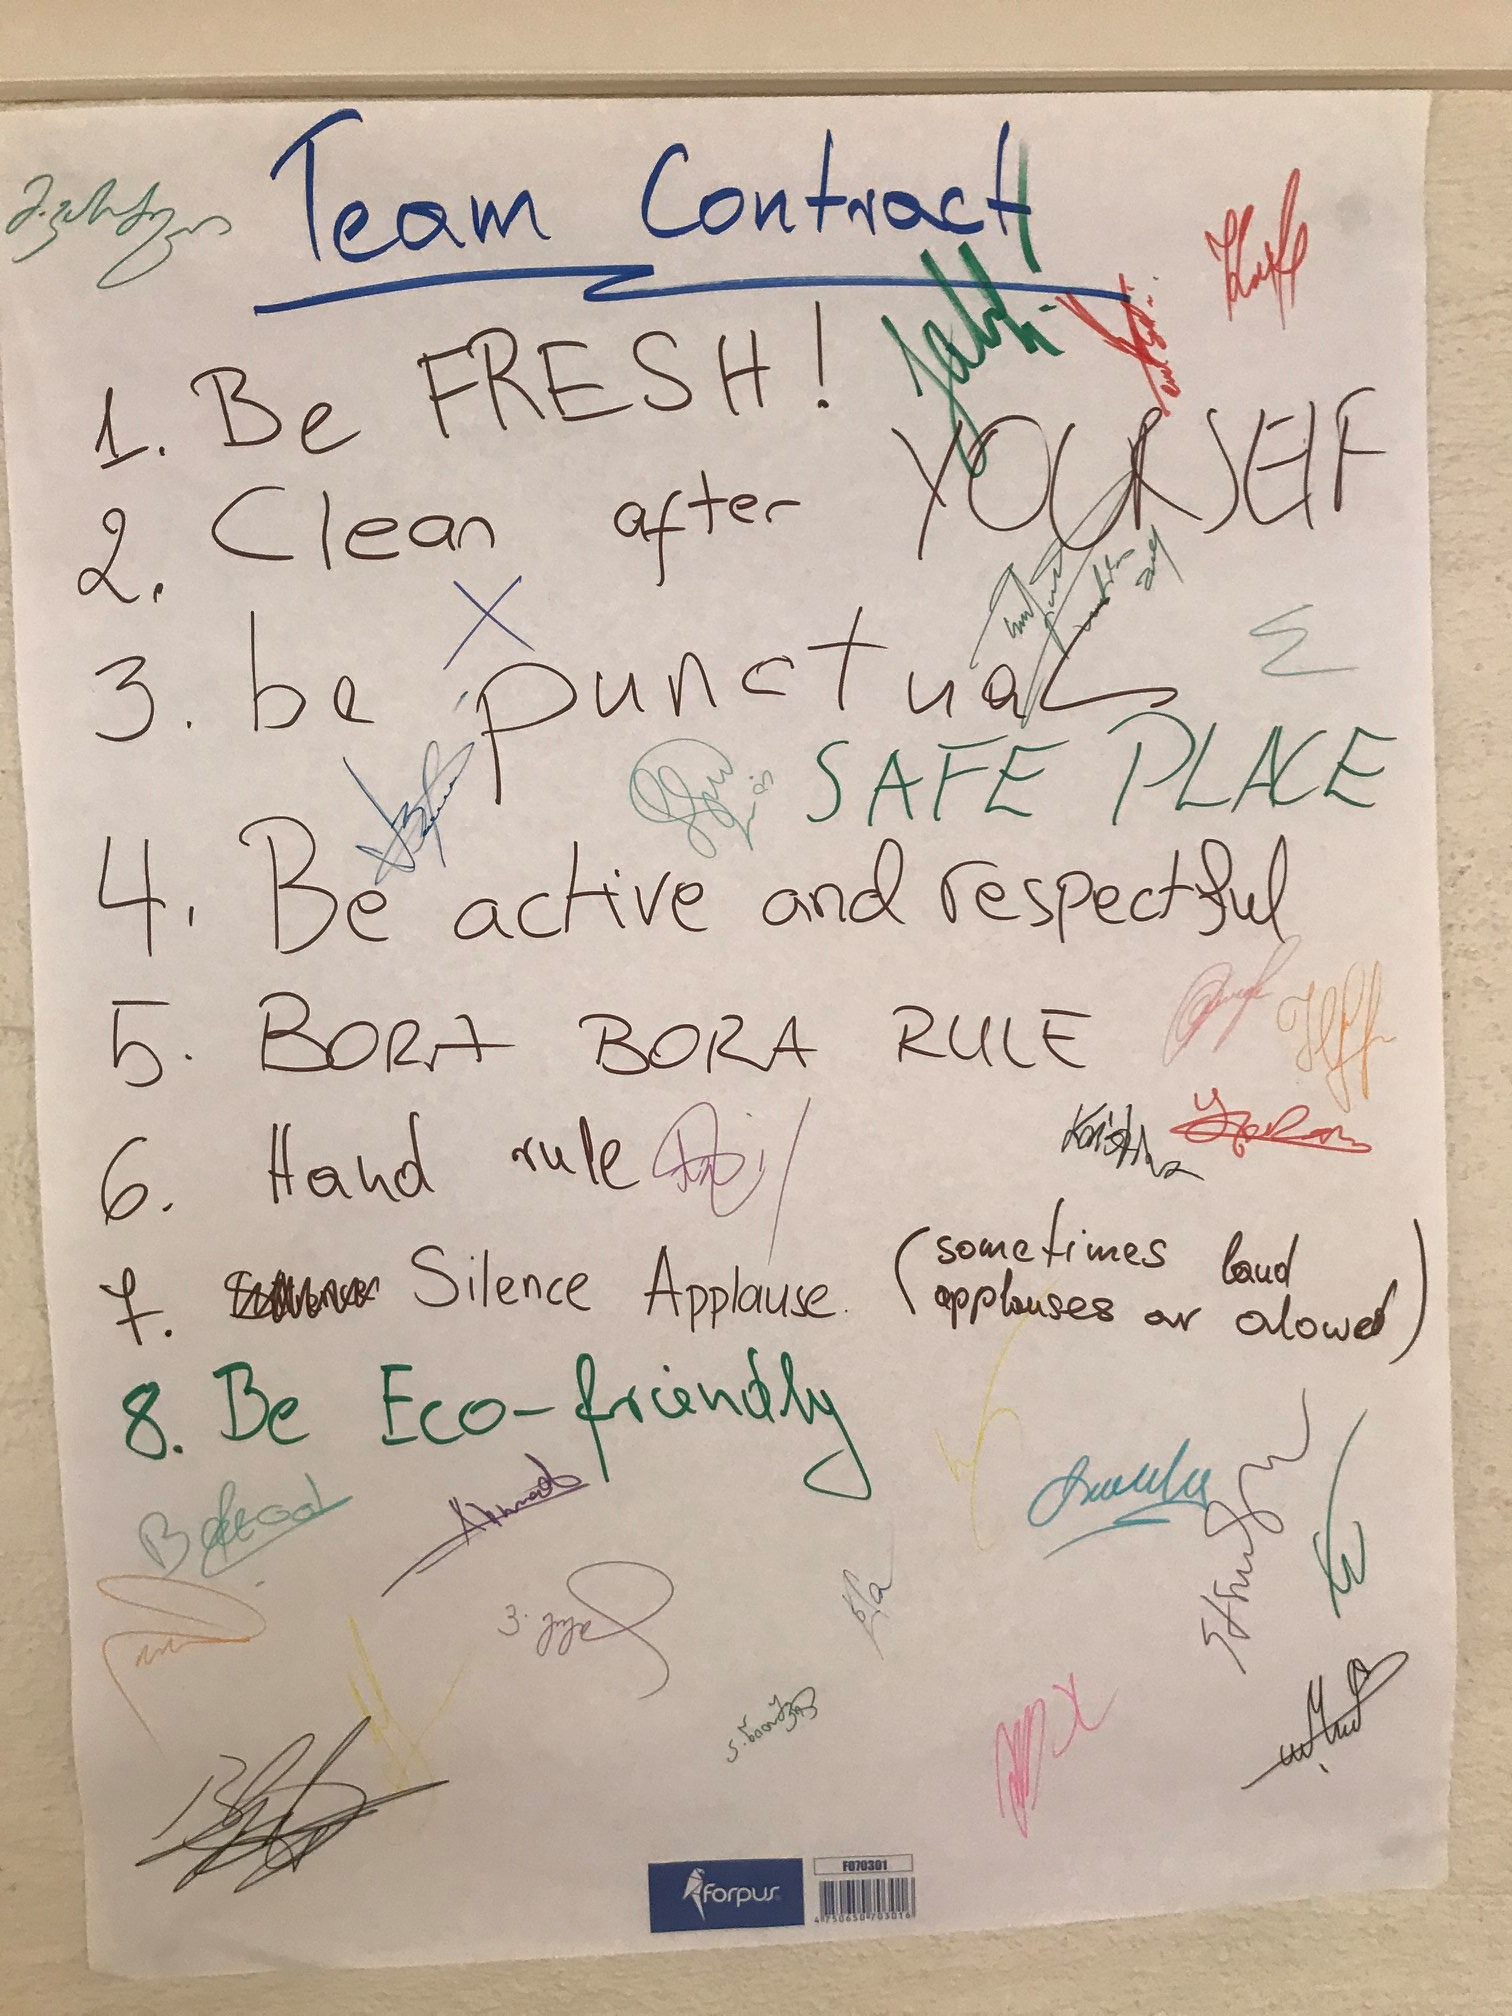 Team Contract
1. Be FRESH!
2. Clean after YOURSELF
3. be punctual
SAFE PLACE
4. Be active and respectful
5. BORA BORA RULE
6. Hand rule
Kristina
7. Silence Applause. (sometimes loud
applauses ar alowed)
8. Be Eco-friendly
forpus
F070301
4 750650 703016